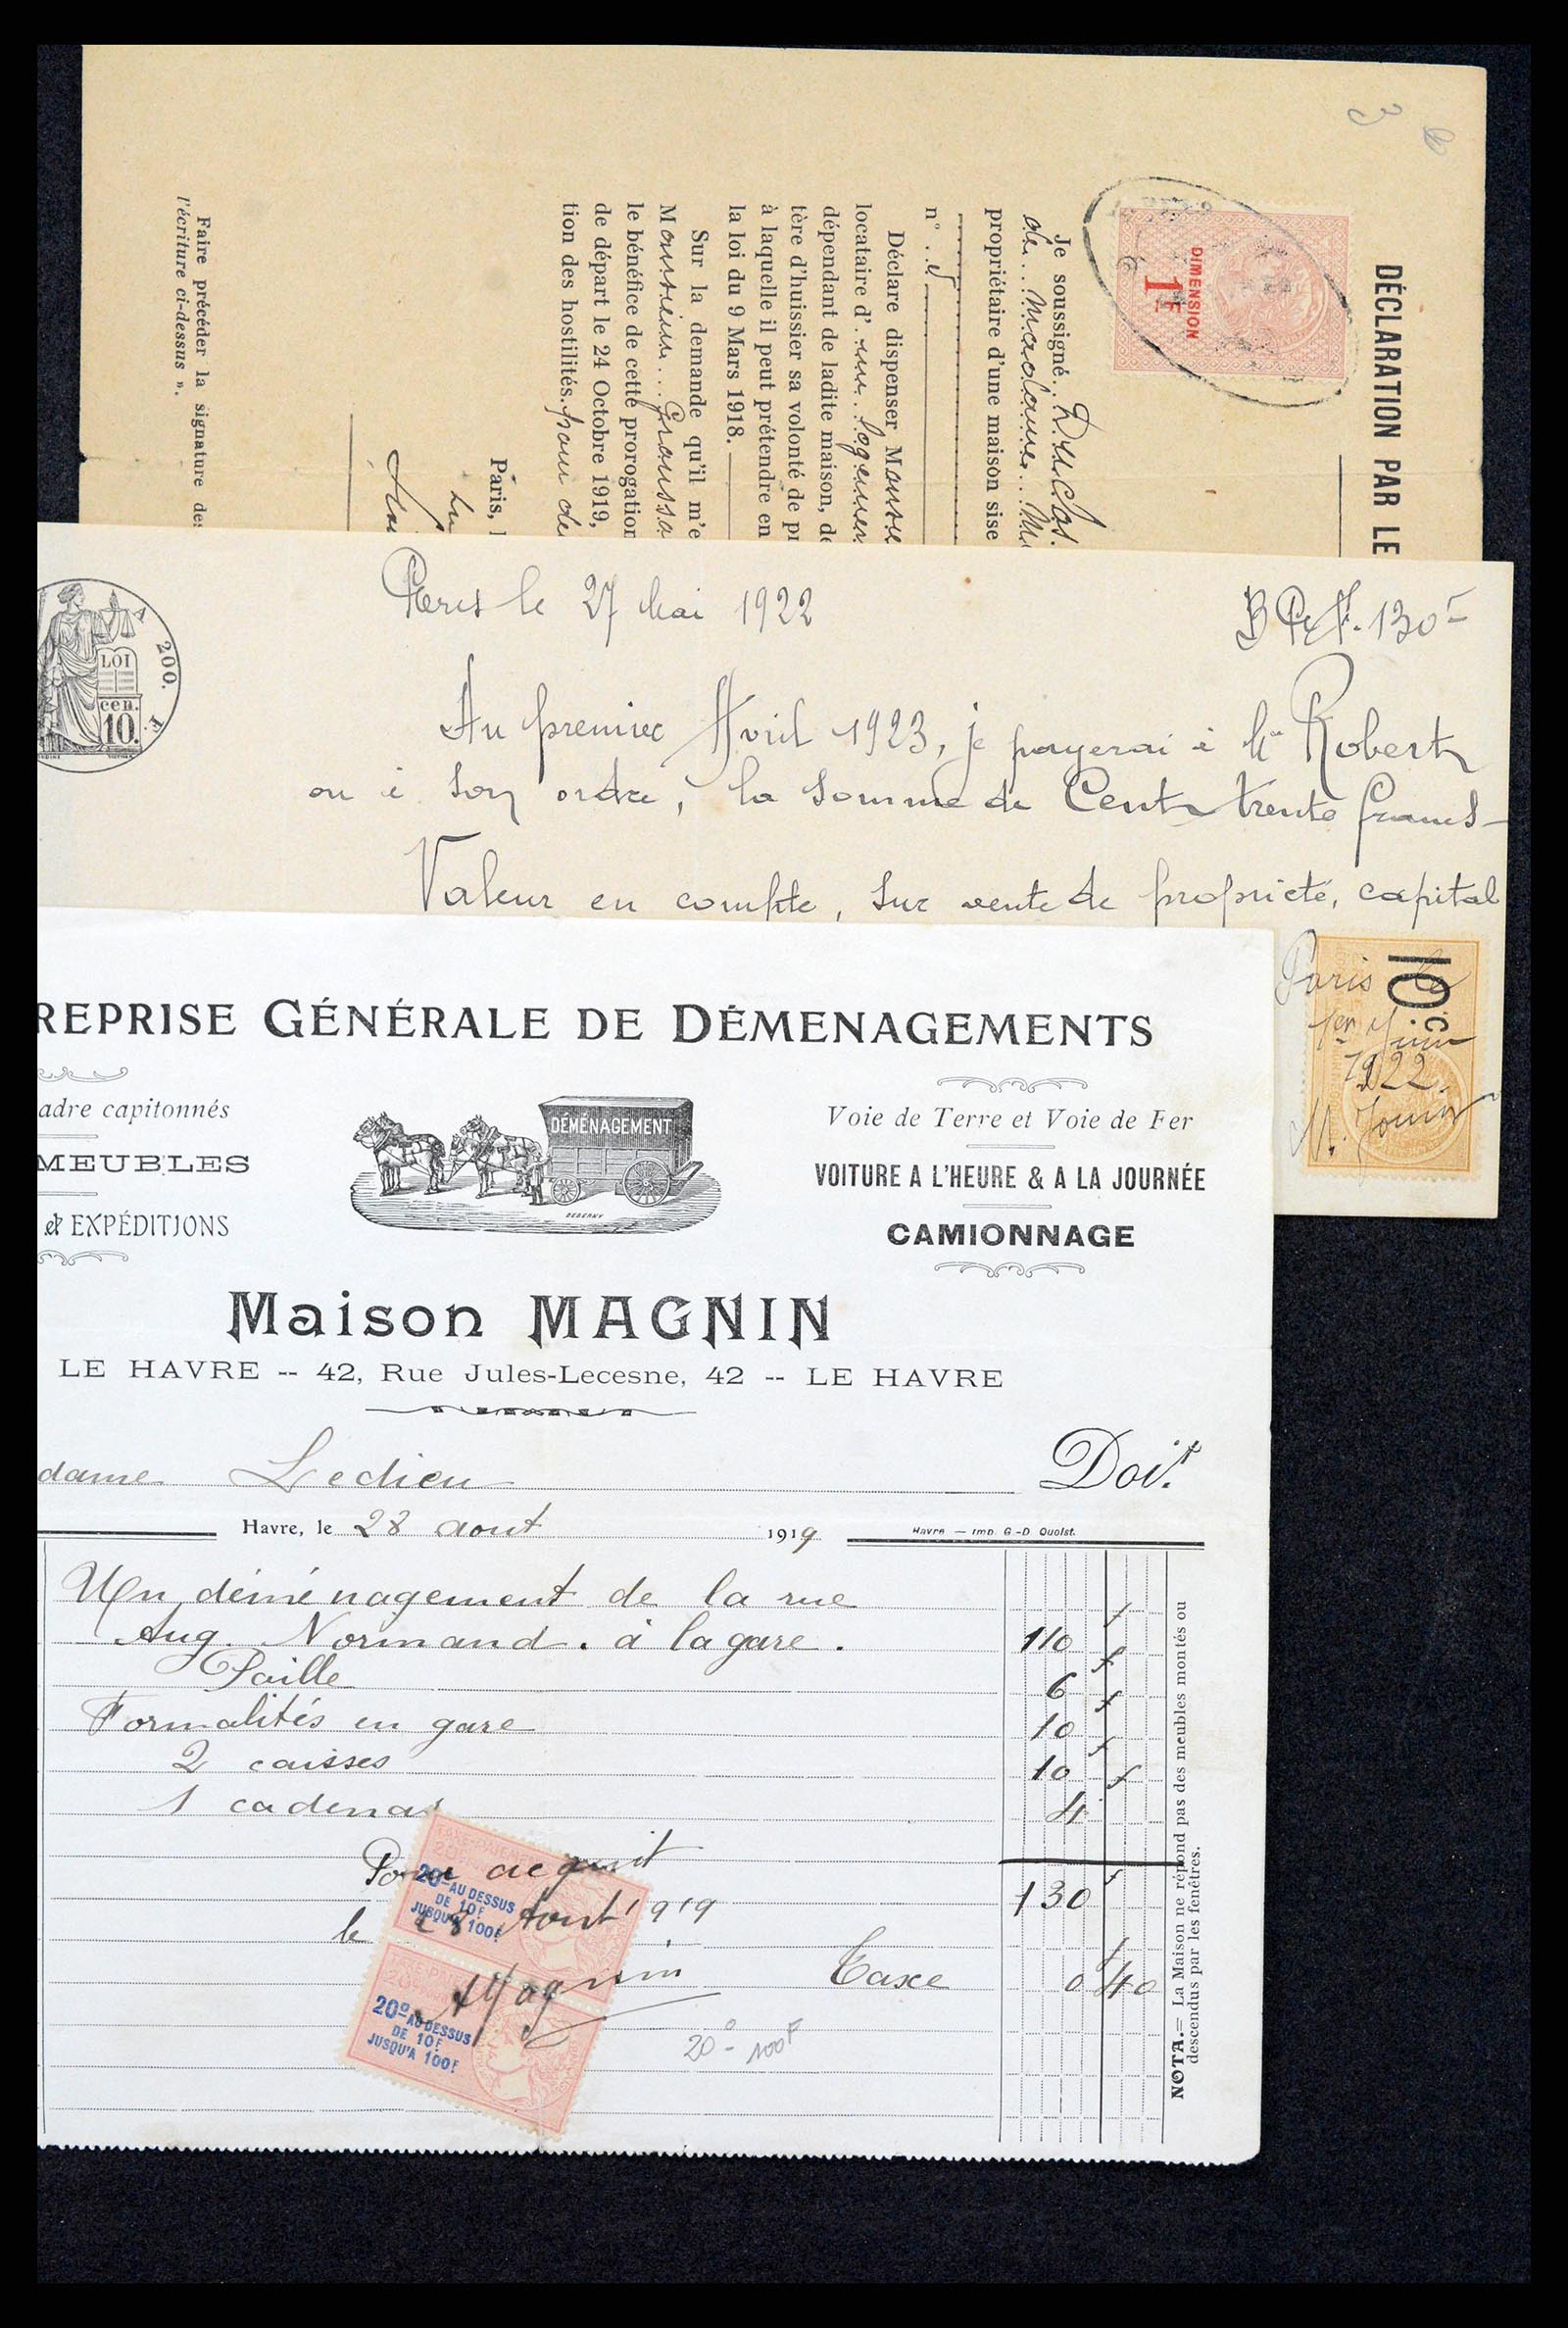 3
DÉCLARATION PAR LE
DIMENSION
1F
Je soussigné Duclos.
de Madame
propriétaire d'une maison sise
n° 5
Déclare dispenser
locataire d'un logement
dépendant de ladite maison, de
tère d'huissier sa volonté de pr
à laquelle il peut prétendre en
la loi du 9 Mars 1918.
Sur la demande qu'il m'e
Monsieur Grousso
le bénéfice de cette prorogation
de départ le 24 Octobre 1919,
tion des hostilités. pour de
Paris, l
Faire précéder la signature des
l'écriture ci-dessus ».
A 200. F.
LOI
cen.
10.
Paris le 27 Mai 1922
B.P.F. 130 F
Au premier Avril 1923, je payerai à Mr Robert
ou à son ordre, la somme de Cent trente francs
Valeur en compte, sur vente de propriété, capital
10 c
Paris le
1er Juin
1922.
M. Jouin
REPRISE GÉNÉRALE DE DÉMENAGEMENTS
adre capitonnés
MEUBLES
& EXPÉDITIONS
DÉMÉNAGEMENT
DEBERNY
Voie de Terre et Voie de Fer
VOITURE A L'HEURE & A LA JOURNÉE
CAMIONNAGE
Maison MAGNIN
LE HAVRE -- 42, Rue Jules-Lecesne, 42 -- LE HAVRE
dame Ledieu Doit
Havre, le 28 aout 1919
Havre — Imp. G.-D. Quoist.
Un déménagement de la rue
Aug. Normand. à la gare. 110 f
Paille 6 f
Formalités en gare 10 f
2 caisses 10 f
1 cadenas 4 f
130 f
Pour acquit
le 28 Aout 1919
Magnin
Taxe 0 f 40
20c AU DESSUS
DE 10F
JUSQU'A 100F
20c AU DESSUS
DE 10F
JUSQU'A 100F
20c - 100F
NOTA.= La Maison ne répond pas des meubles montés ou
descendus par les fenêtres.